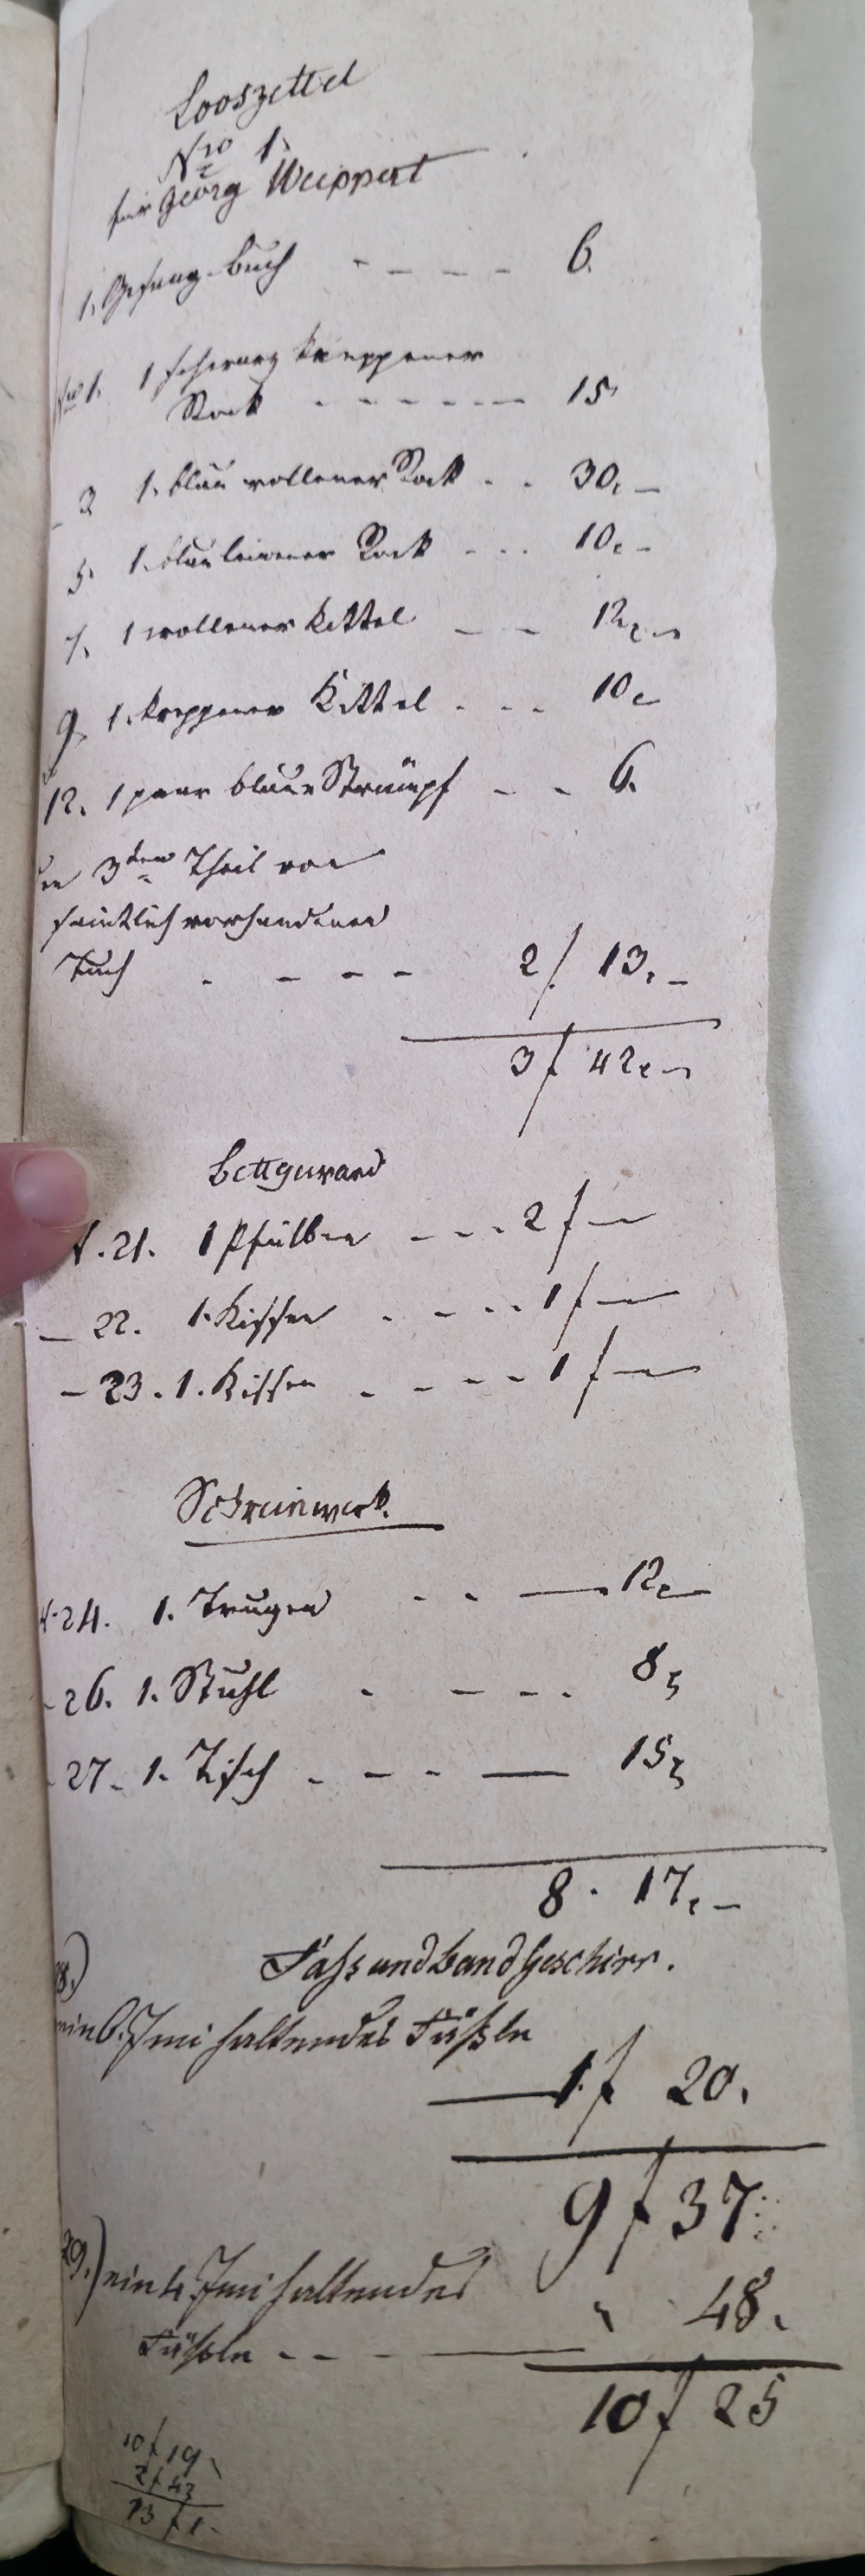 Looszettel
Nro 1.
für Georg Weippert
1. Gesang-buch - - - - 6.
Nro 1. 1 schwarz kreppener
Rock - - - - - - 15
- 3 1. blau wollener Rock - - 30. -
5. 1. blau leinener Rock - - - 10. -
7. 1 wollener Kittel - - 12. -
9. 1. kreppener Kittel - - - 10
12. 1 paar blaue Strümpf - - 6.
den 3ten Theil von
sämtlich vorhandenen
Tuch - - - - 2 f 13. -
3 f 42. -
Bettgwand
N. 21. 1 Pfülben - - - 2 f -
- 22. 1. Kissen - - - - 1 f -
- 23. 1. Kissen - - - - 1 f -
Schreinwerk.
N. 24. 1. Trugen - - - 12
- 26. 1. Stuhl - - - - 8
- 27. 1. Tisch - - - - 15
8. 17. -
Fass und band Geschirr.
28.)
ein 6. Imi haltendes Fäßle
1 f 20.
9 f 37
29.) ein 4. Imi haltendes
" 48.
Fäßle - - -
10 f 25
10 f 19
2 f 42
13 f 1.